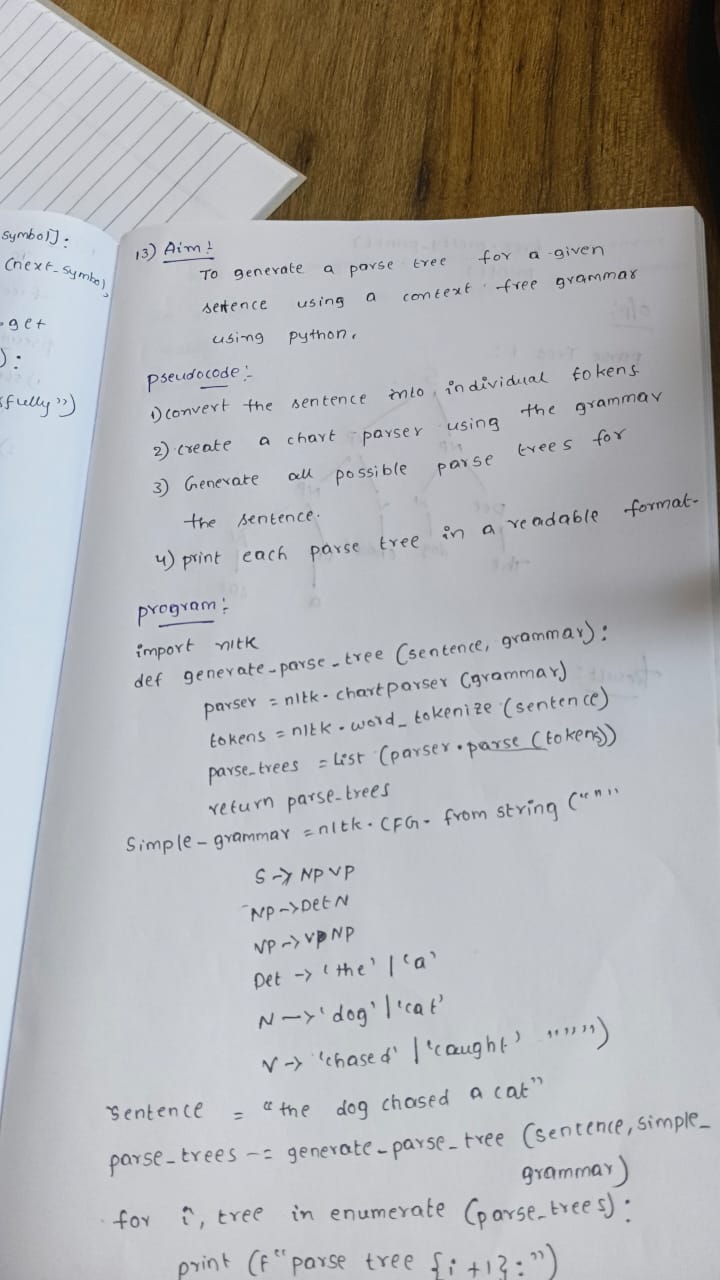 symbol]:
(next-symbol,
.get
):
sfully")
13) Aim:
To generate a parse tree for a given
sentence using a context free grammar
using python.
pseudocode:-
1) convert the sentence into individual tokens
2) create a chart parser using the grammar
3) Generate all possible parse trees for
the sentence.
4) print each parse tree in a readable format.
program:
import nltk
def generate-parse-tree (sentence, grammar):
parser = nltk.chartparser (grammar)
tokens = nltk.word_tokenize (sentence)
parse_trees = list (parser.parse (tokens))
return parse-trees
Simple-grammar = nltk.CFG. from string ("""
S -> NP VP
NP -> Det N
VP -> V NP
Det -> 'the' | 'a'
N -> 'dog' | 'cat'
V -> 'chased' | 'caught' """)
sentence = "the dog chased a cat"
parse_trees -= generate-parse-tree (sentence, simple_
grammar)
for i, tree in enumerate (parse_trees):
print (f"parse tree {i+1}:")